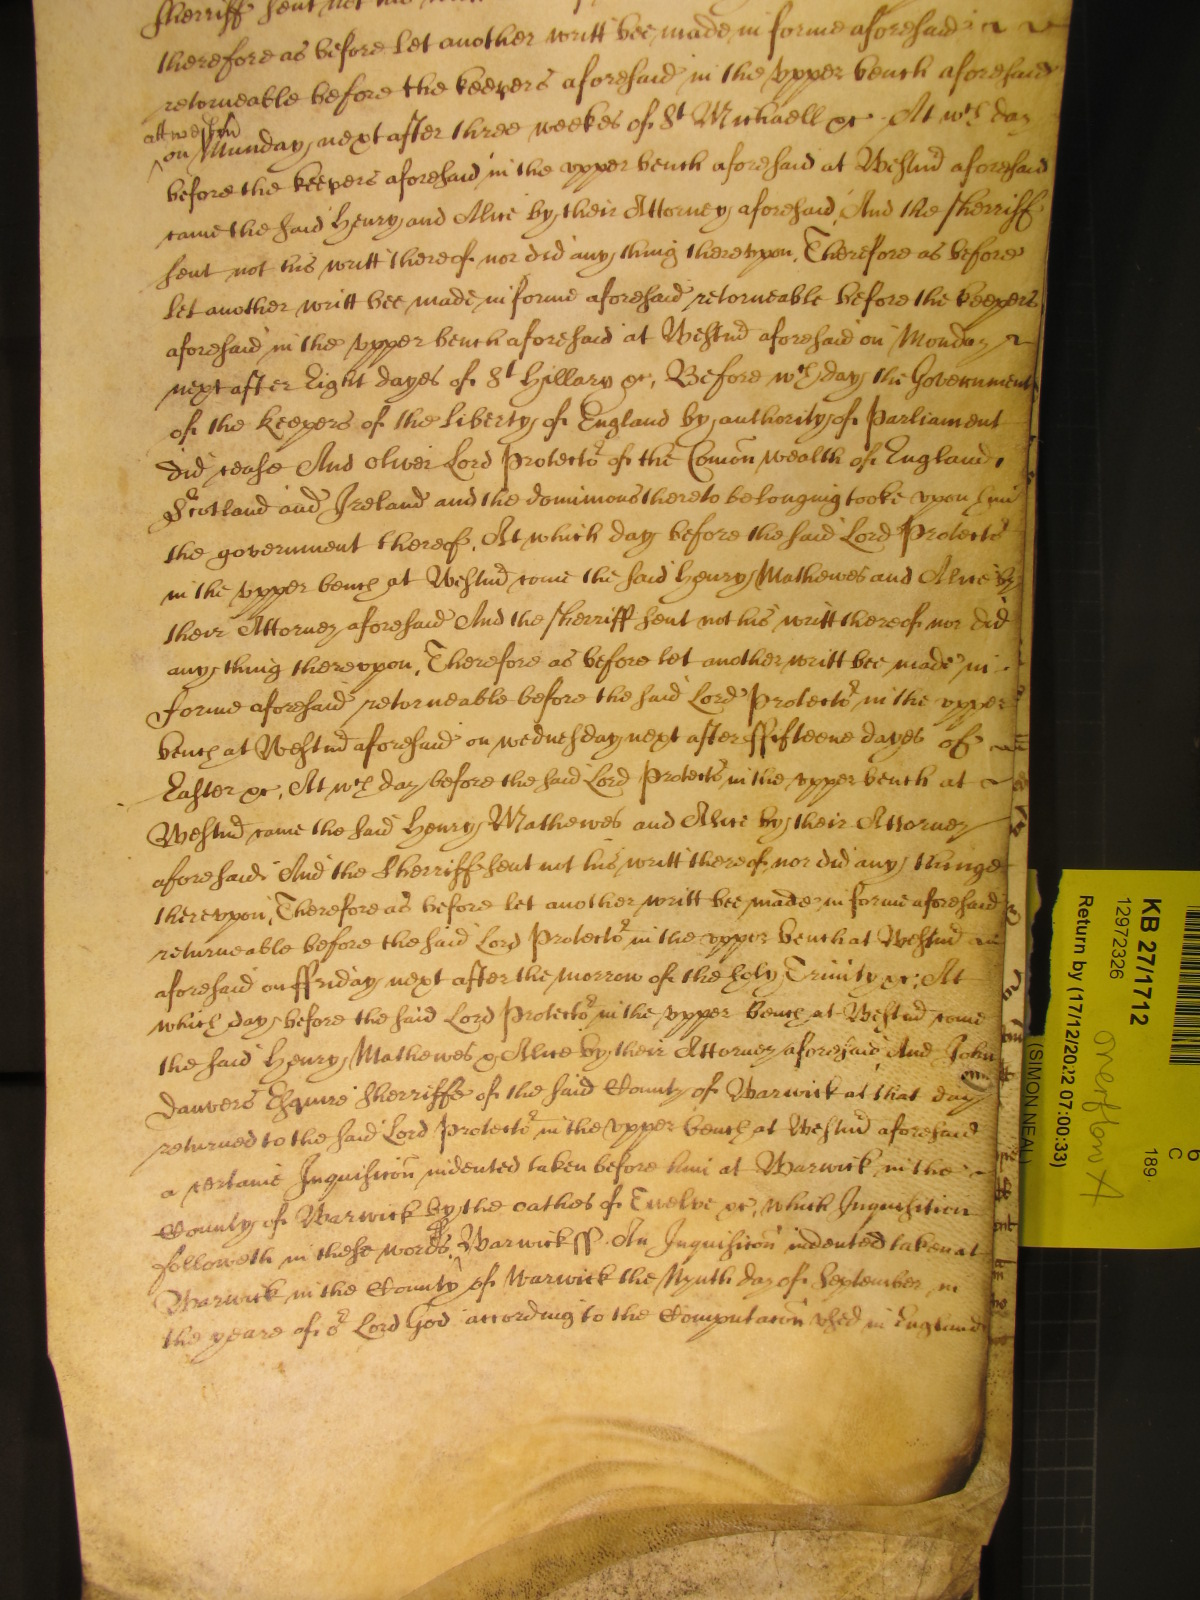 Sherriff sent not his writt
therefore as before let another writt bee made in forme aforesaid
retorneable before the keepers aforesaid in the vpper bench aforesaid
att westm
on Munday next after three weekes of St Michaell &c. At wch day
before the keepers aforesaid in the vpper bench aforesaid at Westmr aforesaid
came the said Henry and Alice by their Attorney aforesaid, And the Sherriff
sent not his writt thereof nor did any thing therevpon. Therefore as before
let another writt bee made in forme aforesaid retorneable before the keepers
aforesaid in the vpper bench aforesaid at Westmr aforesaid on Monday
next after Eight dayes of St Hillary &c. Before wch day the Government
of the keepers of the Liberty of England by authority of Parliament
did cease And Oliver Lord Protector of the Comon wealth of England,
Scotland and Ireland and the dominions thereto belonging tooke vpon him
the government thereof. At which day before the said Lord Protector
in the vpper bench at Westmr come the said Henry Mathewes and Alice by
their Attorney aforesaid And the Sherriff sent not his writt thereof nor did
any thing therevpon. Therefore as before let another writt bee made in
forme aforesaid retorneable before the said Lord Protector in the vpper
bench at Westmr aforesaid on wednesday next after ffifteene dayes of
Easter &c. At wch day before the said Lord Protector in the vpper bench at
Westmr came the said Henry Mathewes and Alice by their Attorney
aforesaid. And the Sherriff sent not his writt thereof nor did any thinge
therevpon. Therefore as before let another writt bee made in forme aforesaid
returneable before the said Lord Protector in the vpper bench at Westmr
aforesaid on ffriday next after the morrow of the holy Trinity &c. At
which day before the said Lord Protector in the vpper bench at Westmr come
the said Henry Mathewes & Alice by their Attorney aforesaid And John
Danvers Esquire Sherriffe of the said County of Warwick at that day
returned to the said Lord Protector in the vpper bench at Westmr aforesaid
a certaine Inquisicon indented taken before him at Warwick in the
County of Warwick by the oathes of Twelve &c, which Inquisition
followeth in these words, Warwick ss. An Inquisicon indented taken at
Warwick in the County of Warwick the Nynth day of September in
the yeare of or Lord God according to the Computacon vsed in England
KB 27/1712
12972326
Return by (17/12/2022 07:00:33)
(SIMON NEAL)
189
C
6